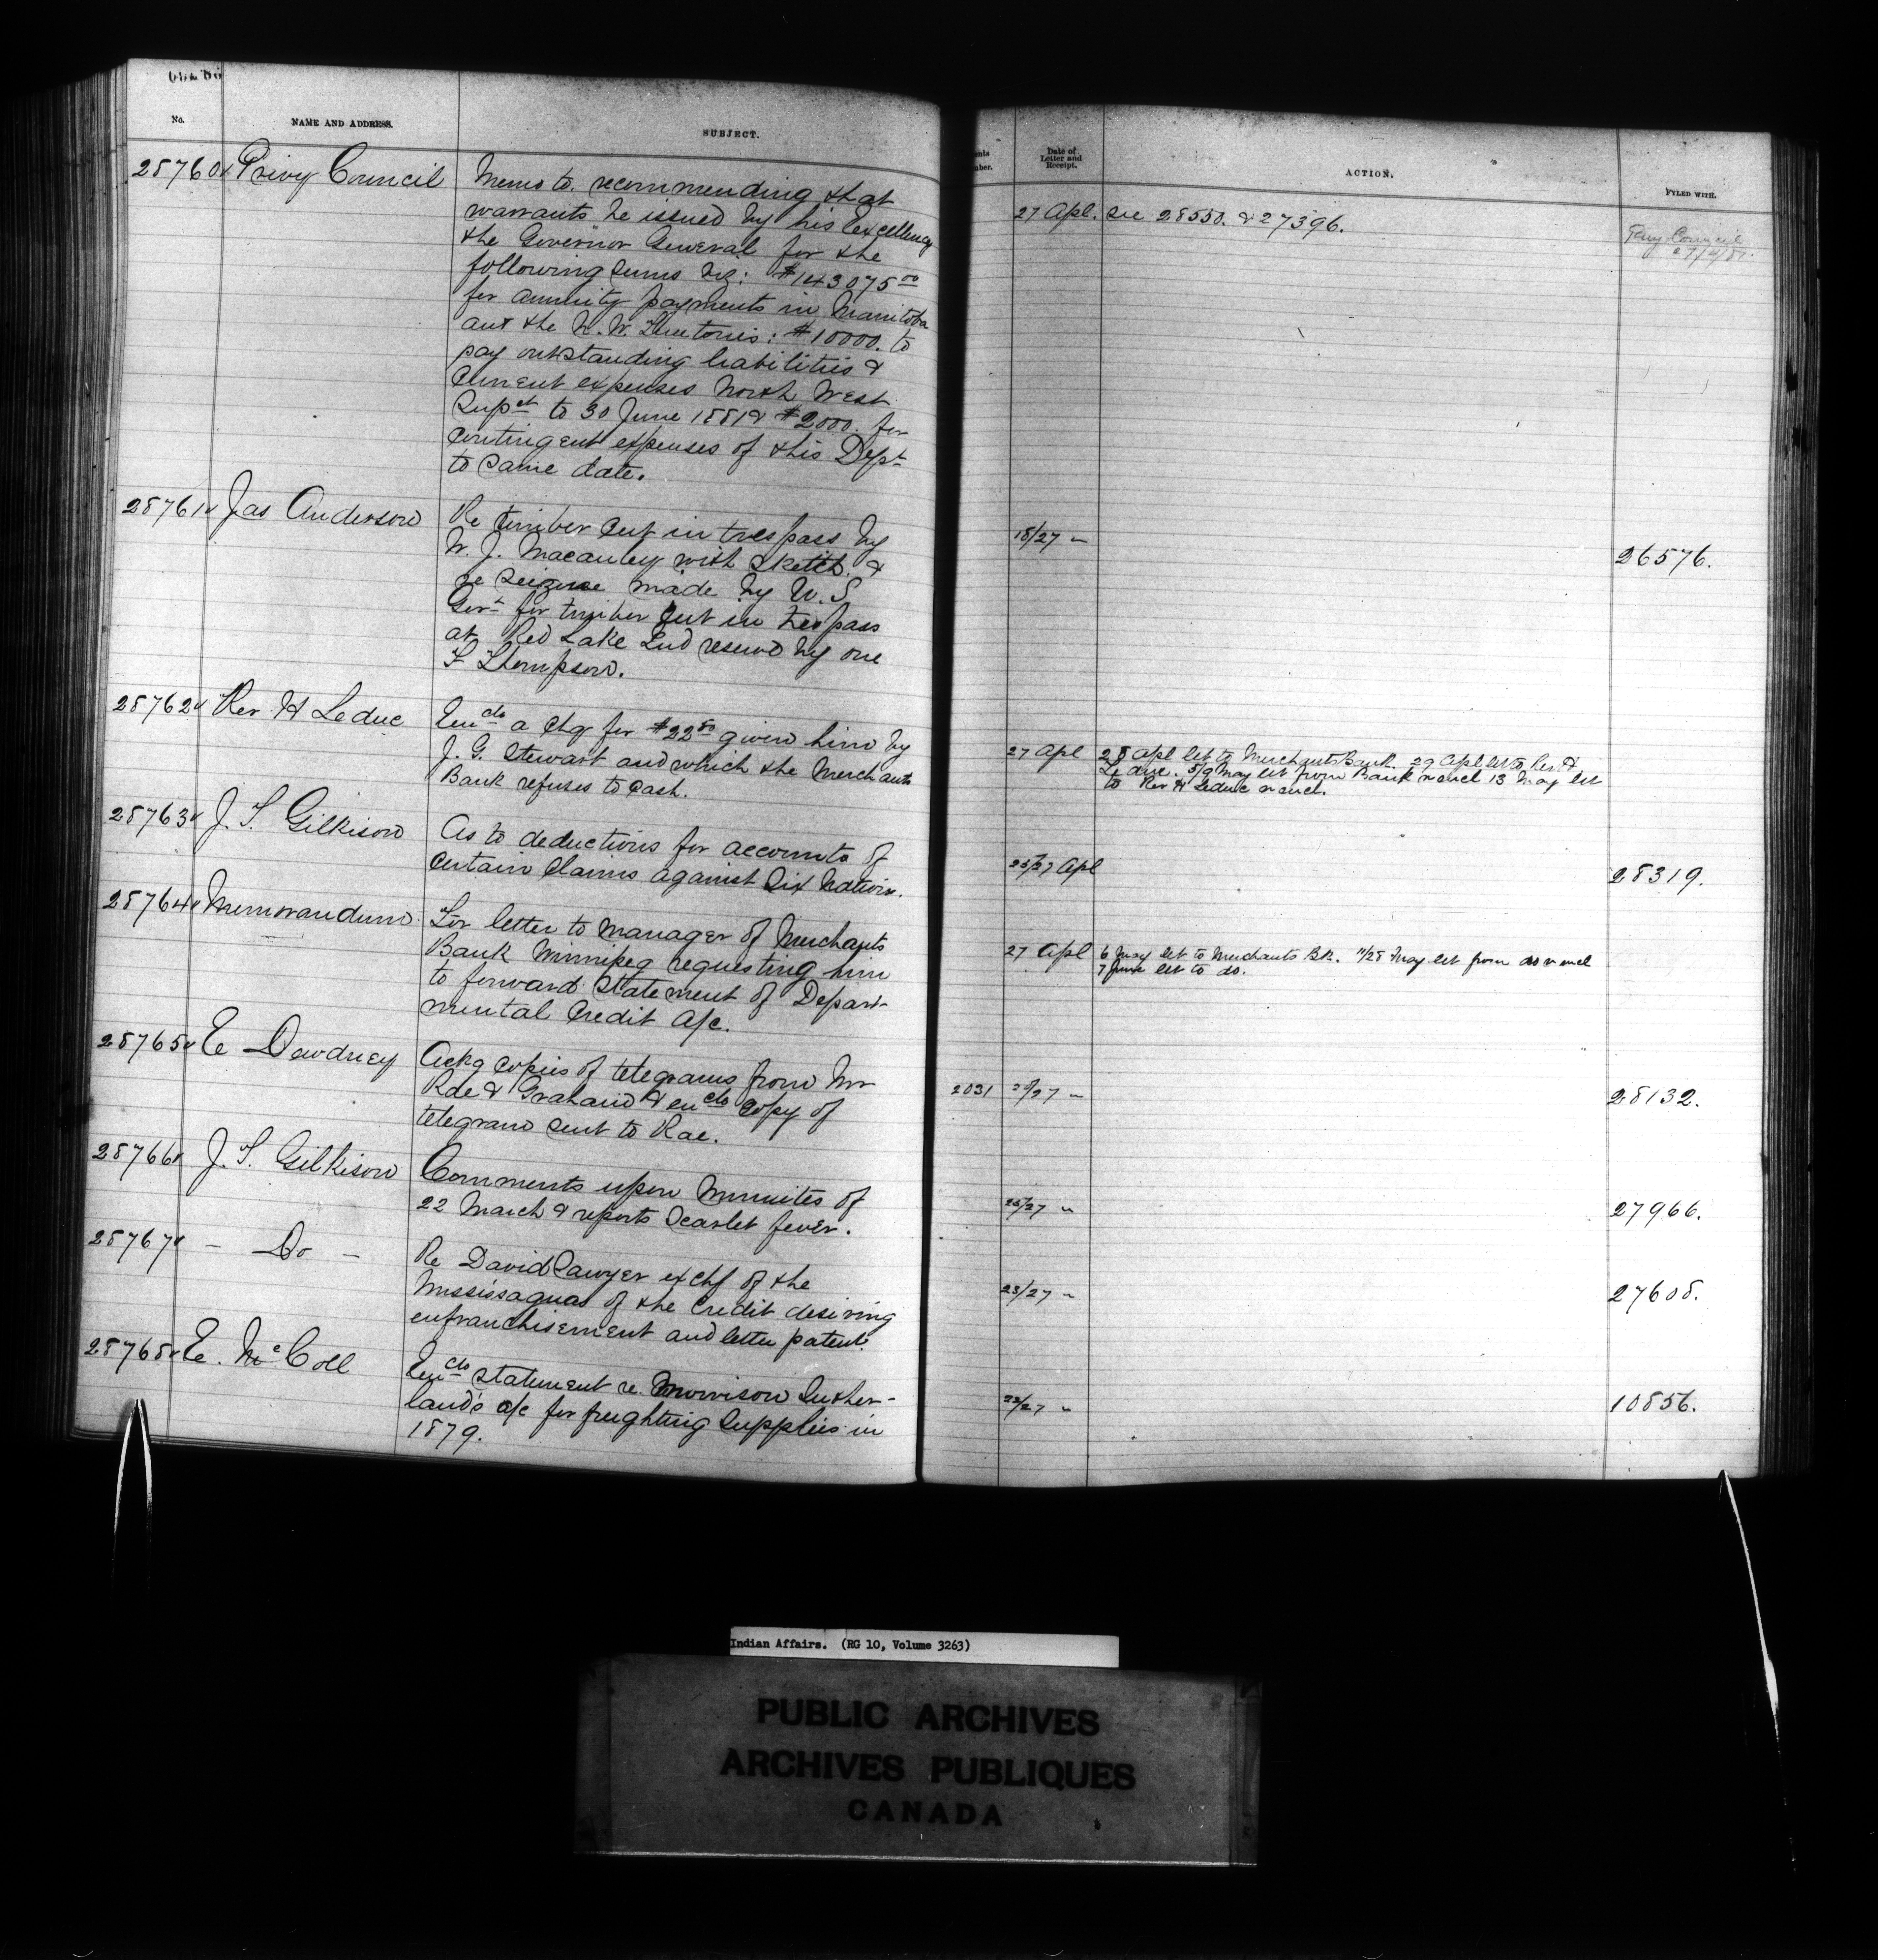 No.
NAME AND ADDRESS.
SUBJECT.
28760 Privy Council
Memo to recommending that
warrants be issued by his Excellency
the Governor General for the
following sums viz: $143075 00
for annuity payments in Manitoba
and the N. W. Territories: $10000. to
pay outstanding liabilities &
Current expenses North West
Supct to 30 June 1881 & $2000. for
Contingent expenses of this Dept
to same date.
28761 Jas Anderson
Re timber cut in trespass by
W. J. Macauley with sketch. &
re seizure made by U. S
Govt for timber cut in trespass
at Red Lake Ind reserve by one
F Thompson.
28762 Rev H Leduc
Encls a chq for $22 50 given him by
J. G. Stewart and which the Merchants
Bank refuses to cash.
28763 J. T. Gilkison
As to deductions for accounts of
Certain Claims against Six Nations.
28764 Memorandum
For letter to Manager of Merchants
Bank Winnipeg requesting him
to forward statement of Depart-
mental Credit a/c.
28765 E Dewdney
Ackg copies of telegrams from Mr
Rae & Graham & encls copy of
telegram sent to Rae.
28766 J. T. Gilkison
Comments upon Minutes of
22 March & reports Scarlet fever.
28767 - Do -
Re David Sawyer ex chf of the
Mississaguas of the Credit desiring
enfranchisement and letter patent.
28768 E. McColl
Encls statement re. Morrison Suther-
land's a/c for freighting Supplies in
1879.
Date of
Letter and
Receipt.
ACTION.
FYLED WITH.
27 Apl. see 28550. & 27396.
Privy Council
27/4/81.
18/27 "
26576.
27 Apl
28 Apl let to Merchants Bank. 29 Apl let to Rev H
Leduc. 5/9 May let from Bank n encl 13 May let
to Rev H Leduc n encl.
25/27 Apl
28319.
27 Apl
6 May let to Merchants Bk. 11/28 May let from do n encl
7 June let to do.
2031
/27 "
28132.
25/27 "
27966.
23/27 "
27608.
22/27 "
10856.
Indian Affairs. (RG 10, Volume 3263)
PUBLIC ARCHIVES
ARCHIVES PUBLIQUES
CANADA